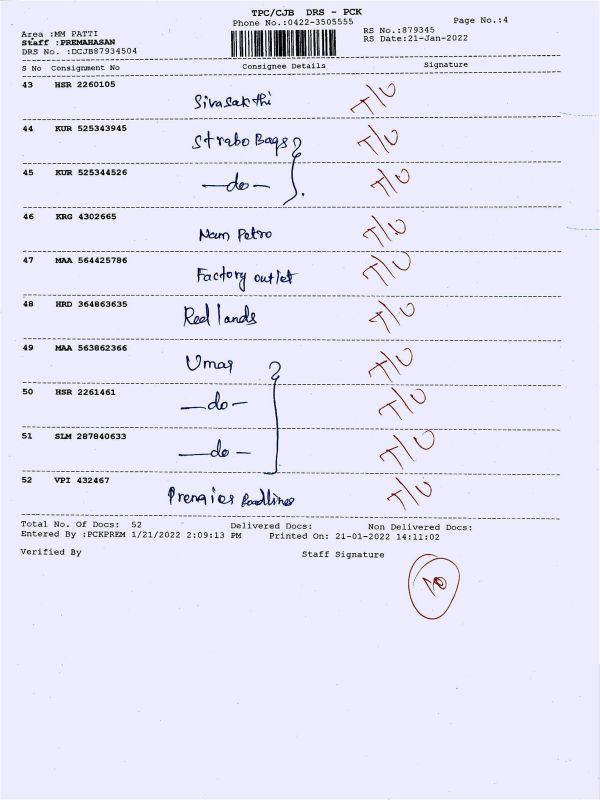 TPC/CJB DRS - PCK
Phone No.:0422-3505555
Page No.:4
Area :MM PATTI
Staff :PREMAHASAN
DRS No. :DCJB87934504
RS No.:879345
RS Date:21-Jan-2022
S No Consignment No Consignee Details Signature
43 HSR 2260105 Sivasakthi T/U
44 KUR 525343945 Strabo Bags T/U
45 KUR 525344526 —do— T/U
46 KRG 4302665 Nam Petro T/U
47 MAA 564425786 Factory outlet T/U
48 HRD 364863635 Red lands T/U
49 MAA 563862366 Umar T/U
50 HSR 2261461 —do— T/U
51 SLM 287840633 —do— T/U
52 VPI 432467 T/U
Total No. Of Docs: 52 Delivered Docs: Non Delivered Docs:
Entered By :PCKPREM 1/21/2022 2:09:13 PM Printed On: 21-01-2022 14:11:02
Verified By Staff Signature
10